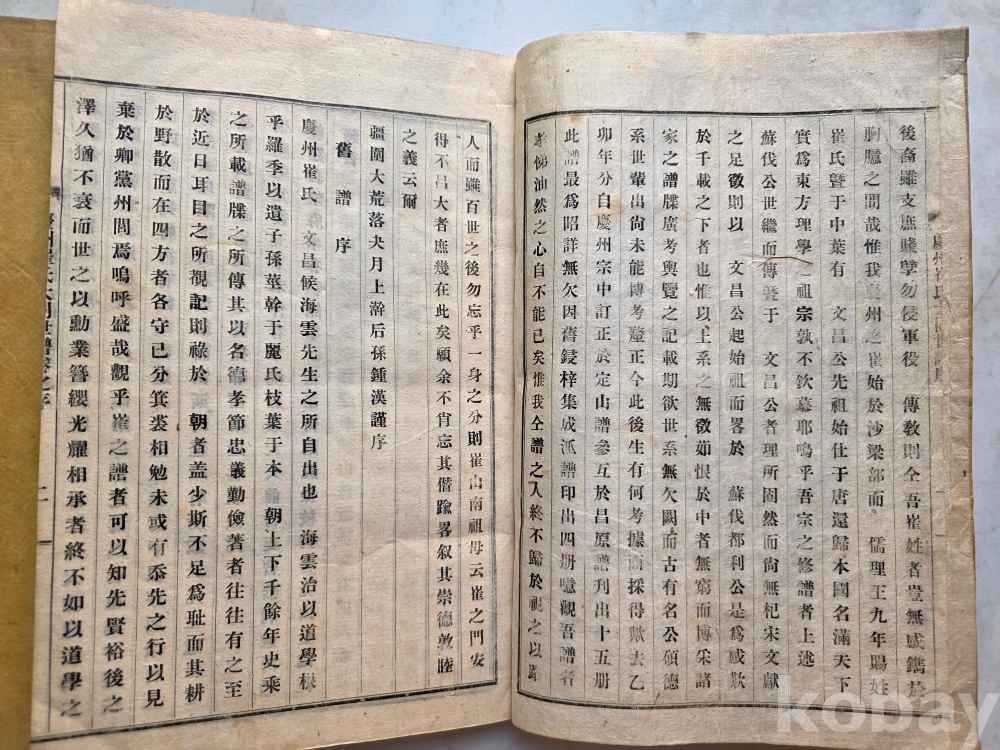 後裔雖支庶賤孽勿侵軍役 傳敎則仝吾崔姓者豈無感鐫於
胸臆之間哉惟我慶州之崔始於沙梁部而 儒理王九年賜姓
崔氏曁于中葉有 文昌公先祖始仕于唐還歸本國名滿天下
實爲東方理學之祖宗孰不欽慕耶嗚乎吾宗之修譜者上述
蘇伐公世繼而傳曁于 文昌公者理所固然而尙無杞宋文獻
之足徵則以 文昌公起始祖而畧於 蘇伐都利公是爲感歎
於千載之下者也惟以上系之無徵茹恨於中者無窮而博采諸
家之譜牒廣考輿覽之記載期欲世系無欠闕而古有名公碩德
系世輩出尙未能博考釐正今此後生有何考據而採得歟去乙
卯年分自慶州宗中訂正於定山譜參互於昌原譜刊出十五册
此譜最爲昭詳無欠因舊鋟梓集成派譜印出四册噫觀吾譜者
孝悌油然之心自不能已矣惟我仝譜之人終不歸於視之以路
人而雖百世之後勿忘乎一身之分則崔山南祖母云崔之門安
得不昌大者庶幾在此矣願余不肖忘其僭踰畧叙其崇德敦睦
之義云爾
疆圉大荒落夬月上澣后孫鍾漢謹序
舊譜序
慶州崔氏 文昌候海雲先生之所自出也 海雲治以道學根
乎羅季以遺子孫莖幹于麗氏枝葉于本 朝上下千餘年史乘
之所載譜牒之所傳其以名德孝節忠義勤儉著者往往有之至
於近日耳目之所覩記則祿於 朝者盖少斯不足爲耻而其耕
於野散而在四方者各守已分箕裘相勉未或有忝先之行以見
棄於卿黨州閭焉嗚呼盛哉觀乎崔之譜者可以知先賢裕後之
澤久猶不衰而世之以勳業簪纓光耀相承者終不如以道學之
二
kobay